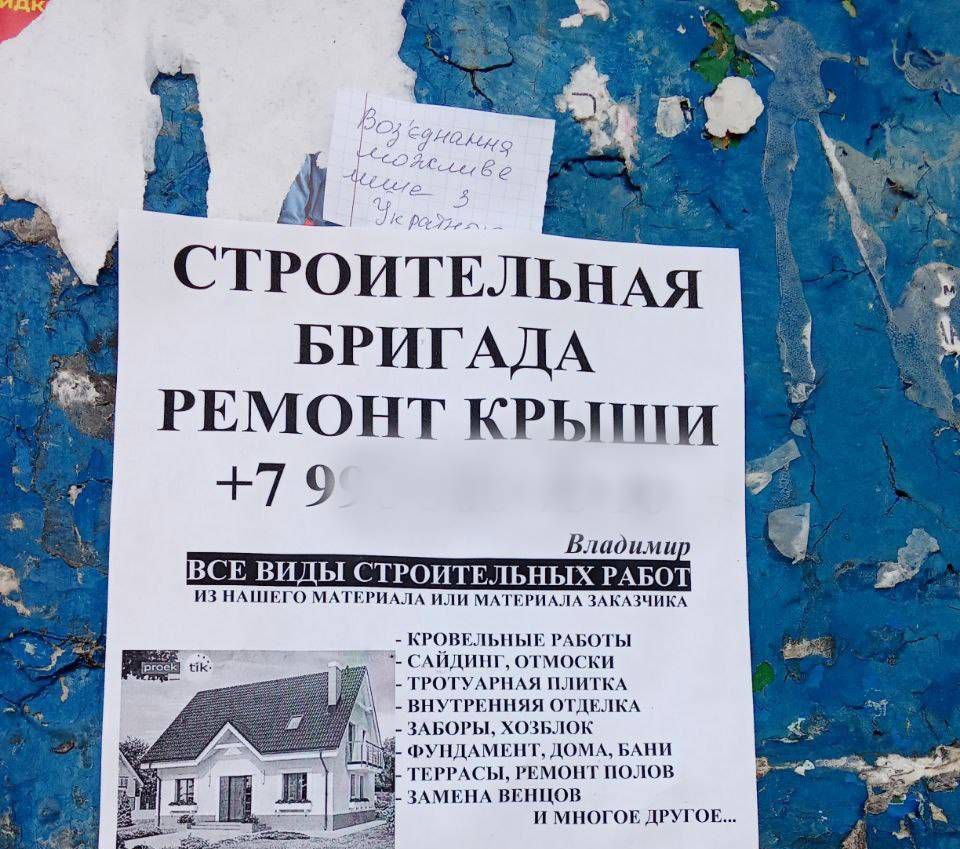 Воз'єднання
можливе
лише з
Україною
СТРОИТЕЛЬНАЯ
БРИГАДА
РЕМОНТ КРЫШИ
+7 9
Владимир
ВСЕ ВИДЫ СТРОИТЕЛЬНЫХ РАБОТ
ИЗ НАШЕГО МАТЕРИАЛА ИЛИ МАТЕРИАЛА ЗАКАЗЧИКА
proek tik
- КРОВЕЛЬНЫЕ РАБОТЫ
- САЙДИНГ, ОТМОСКИ
- ТРОТУАРНАЯ ПЛИТКА
- ВНУТРЕННЯЯ ОТДЕЛКА
- ЗАБОРЫ, ХОЗБЛОК
- ФУНДАМЕНТ, ДОМА, БАНИ
- ТЕРРАСЫ, РЕМОНТ ПОЛОВ
- ЗАМЕНА ВЕНЦОВ
И МНОГОЕ ДРУГОЕ...